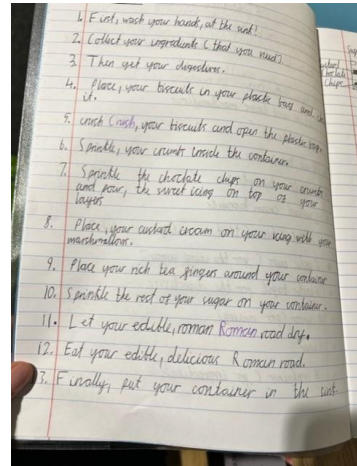 1. First, wash your hands, at the sint!
2. Collect your ingredients (that you need).
3. Then get your digestives.
4. Place, your biscuits in your plastic bag and
it.
5. crush Crush, your biscuits and open the plastic bag.
6. Sprinkle, your crumbs inside the container.
7. Sprinkle the choclate chips on your crumbs
and pour, the sweet icing on top of your
layers
8. Place, your custard cream on your icing with your
marshmallows.
9. Place your rich tea fingers around your container
10. Sprinkle the rest of your sugar on your container.
11. Let your edible, roman Roman road dry.
12. Eat your edible, delicious Roman road.
13. Finally, put your container in the sint.
Choclate
Chips